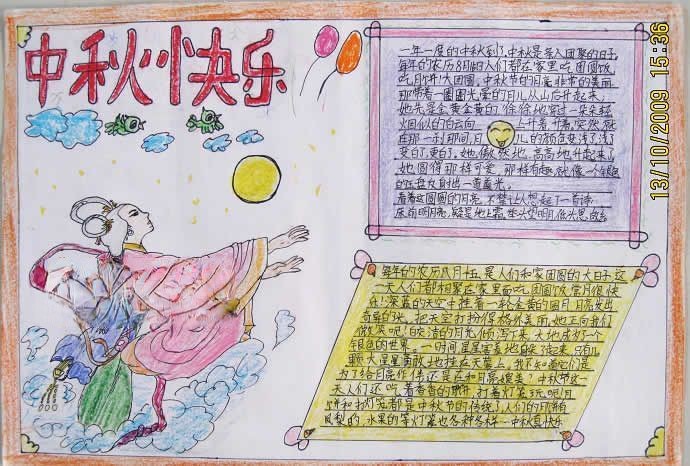 中秋快乐
一年一度的中秋到了,中秋是家人团聚的日子,
每年的农历8月15日人们都在家里吃团圆饭
吃月饼大团圆,中秋节的月亮非常的美丽
那带着一圈圈光晕的月儿从山后升起来,
她先是金黄金黄的徐徐地穿过一朵朵轻
烟似的白云向上升着,升着,突然就
在那一刹那间,月儿的颜色变浅了浅了
变白了,更白了,她傲然地,高高地,升起来了,
她圆得那样可爱,那样有趣,就像一个银色
的玉盘反射出一道蓝光。
看着这圆圆的月亮,不禁让人想起了一首诗:
床前明月光,疑是地上霜,举头望明月,低头思故乡
每年的农历八月十五,是人们和家团圆的大日子,这
一天人们都相聚在家里面吃团圆饭,赏月,很快
在深蓝的天空中挂着一轮金黄的圆月,月亮发出
天空打扮得格外美丽,她正向我们
微笑呢!皎洁的月光倾泻下来,大地成了个
银色的世界,一时间,星星害羞地躲了起来,只有几
颗大星星勇敢地挂在天幕上,我不知道它们是
为了给月亮作伴还是在和月亮媲美?中秋节这一
天人们还吃着香香的月饼,打着灯笼玩呢!月
饼和灯笼都是中秋节的传统了,人们的月饼有
凤梨的,水果的等,灯笼也各种各样…中秋真快乐
13/10/2009 15:36